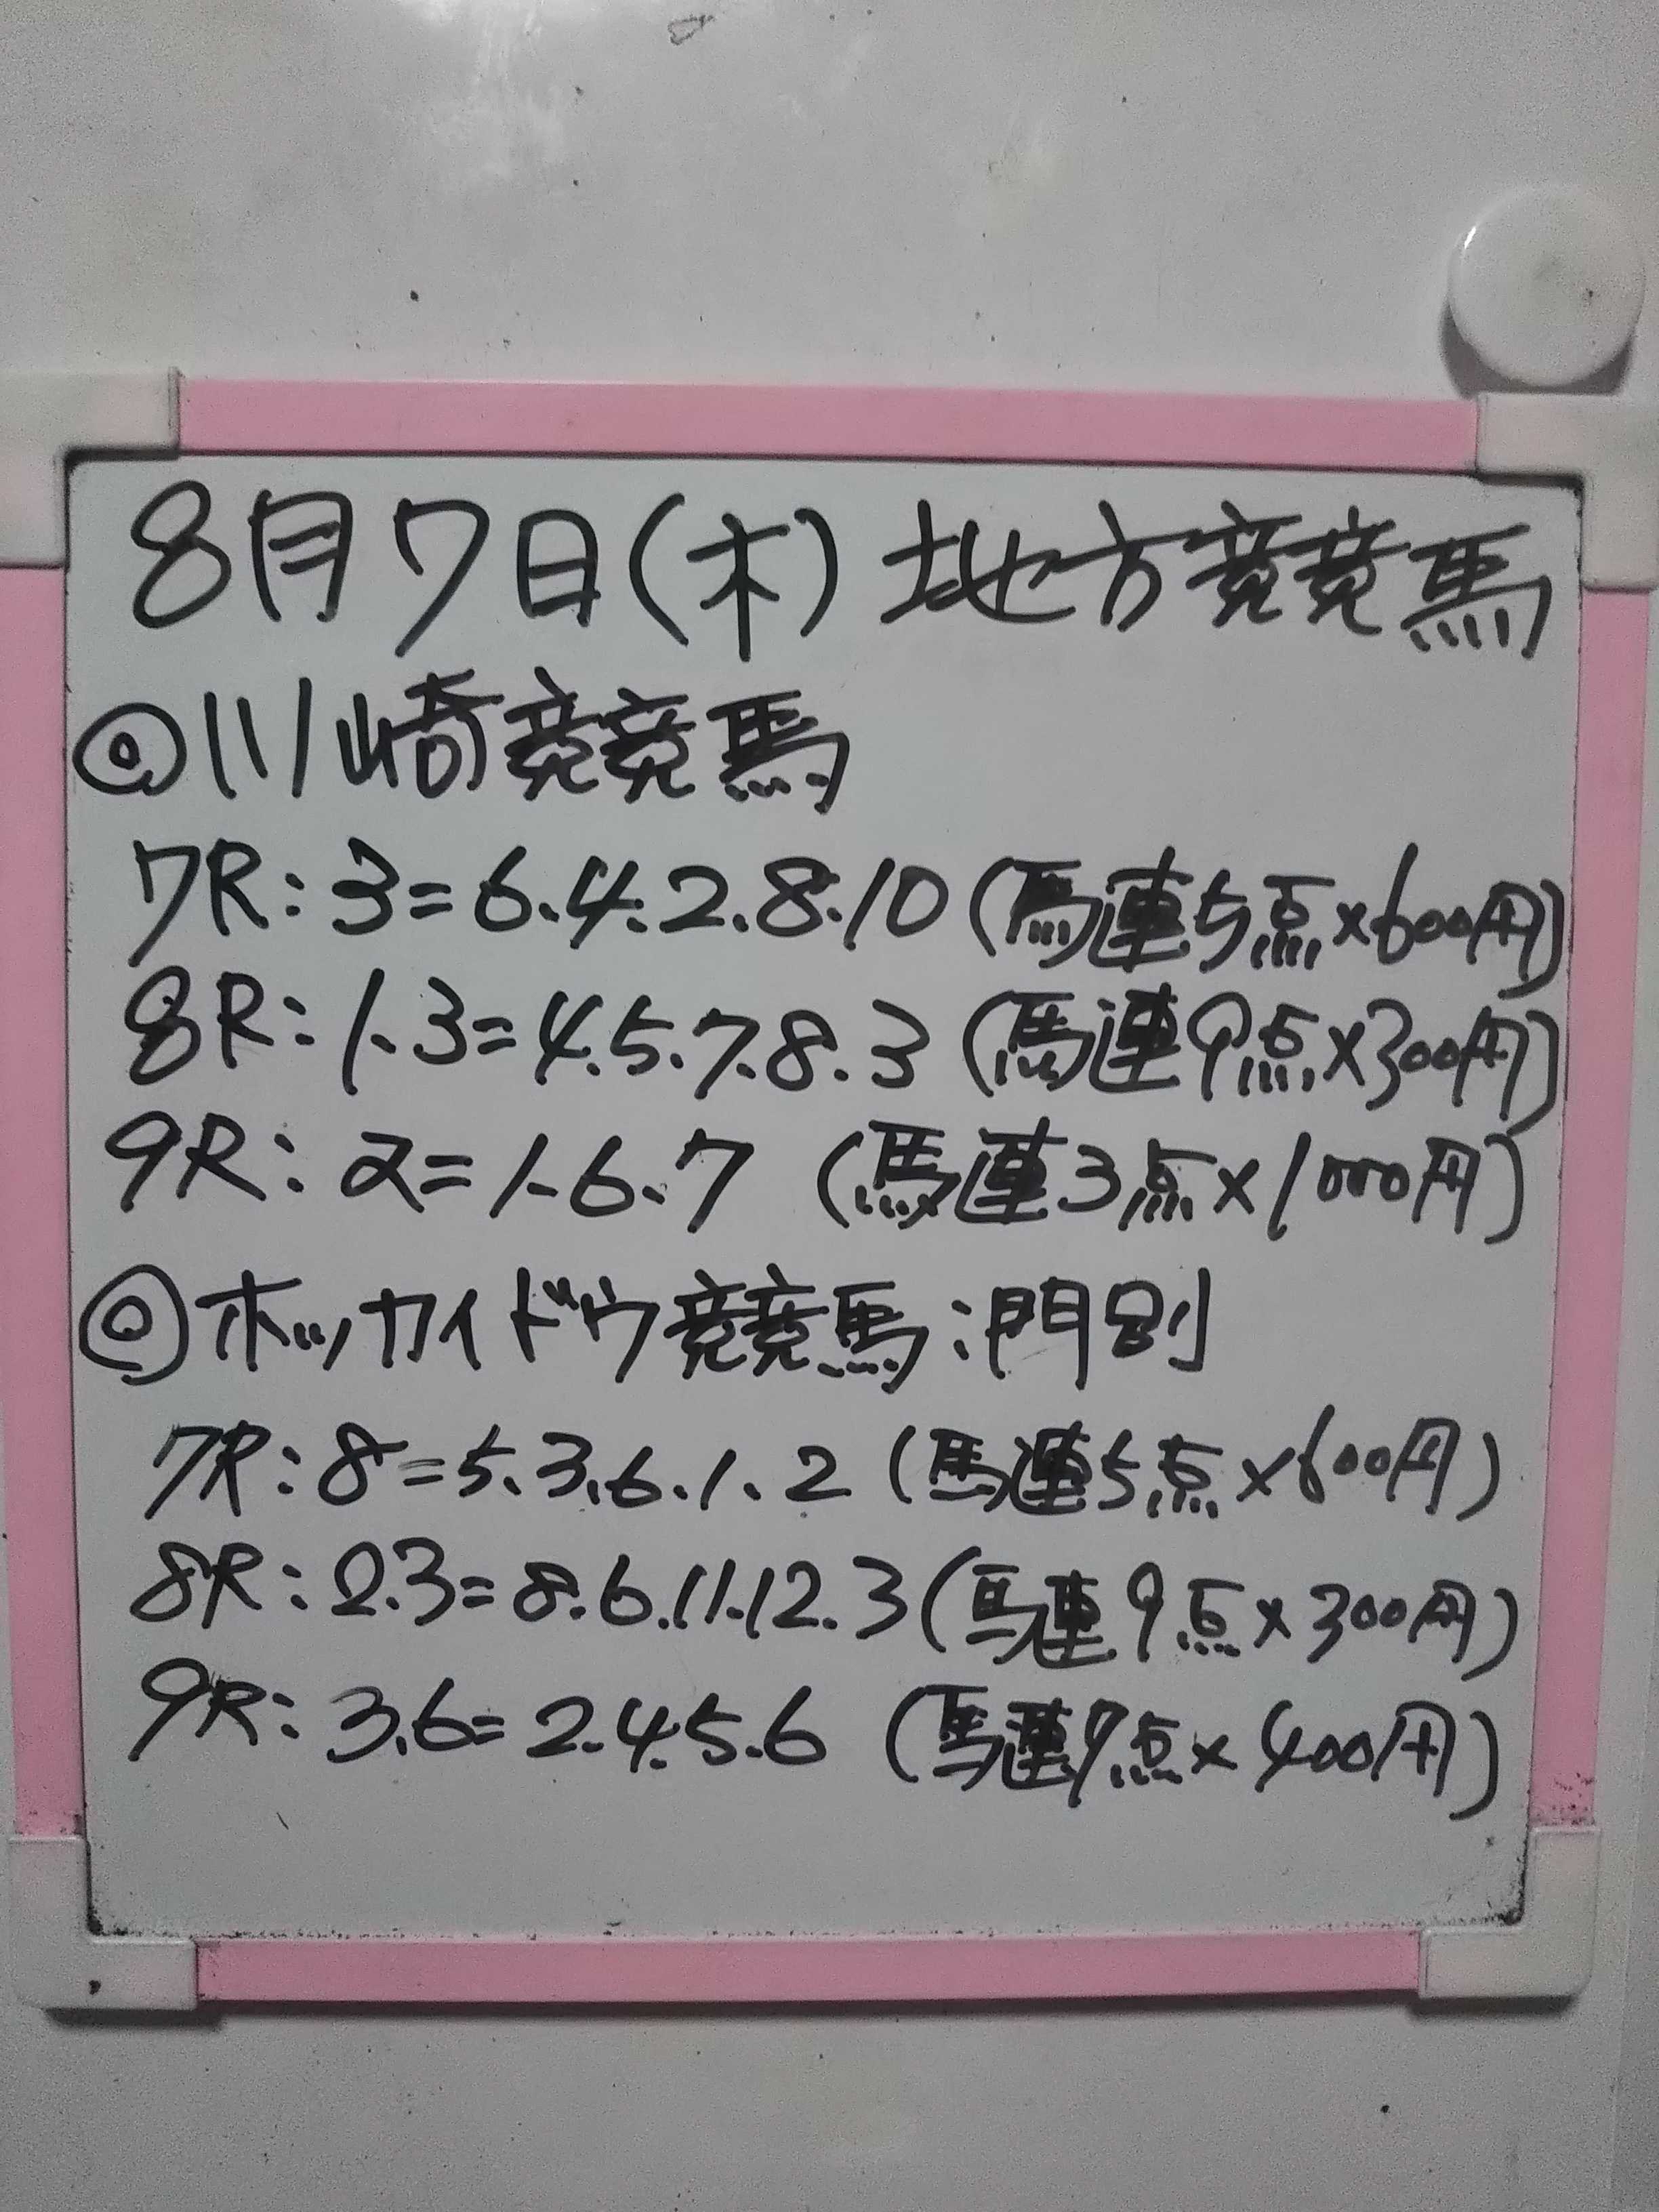 8月7日(木)地方競馬
◎川崎競馬
7R:3=6.4.2.8.10(馬連5点×600円)
8R:1.3=4.5.7.8.3(馬連9点×300円)
9R:2=1.6.7(馬連3点×1000円)
◎ホッカイドウ競馬:門別
7R:8=5.3.6.1.2(馬連5点×600円)
8R:2.3=8.6.11.12.3(馬連9点×300円)
9R:3.6=2.4.5.6(馬連7点×400円)